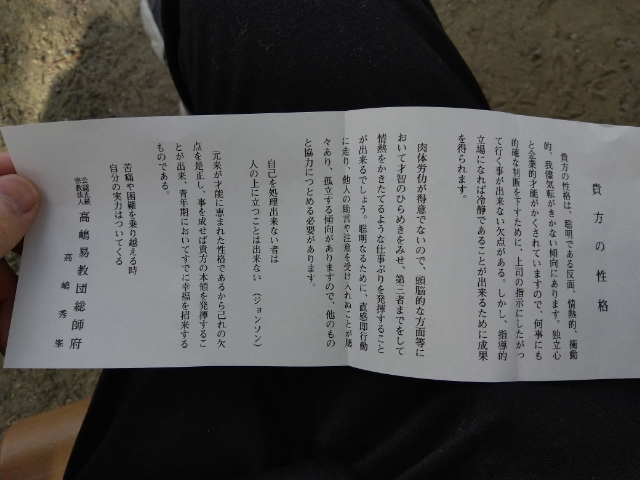 貴方の性格
貴方の性格は、聡明である反面、情熱的、衝動
的、我儘気転がきかない傾向にあります。独立心
と企業的才能がかくされていますので、何事にも
的確な判断を下すために、上司の指示にしたがっ
て行く事が出来ない欠点がある。しかし、指導的
立場になれば冷静であることが出来るために成果
を得られます。
肉体労働が得意でないので、頭脳的な方面等に
おいて才智のひらめきをみせ、第三者までをして
情熱をかきたてるような仕事ぶりを発揮すること
が出来るでしょう。聡明なるために、直感即行動
に走り、他人の助言や注意を受け入れぬことが屡
々あり、孤立する傾向がありますので、他のもの
と協力につとめる必要があります。
自己を処理出来ない者は
人の上に立つことは出来ない（ジョンソン）
元来が才能に恵まれた性格であるから己れの欠
点を是正し、事を成せば貴方の本領を発揮するこ
とが出来、青年期においてすでに幸福を招来する
ものである。
苦痛や困難を乗り越える時
自分の実力はついてくる
宗教法人
高嶋易教団総師府
高嶋秀峯